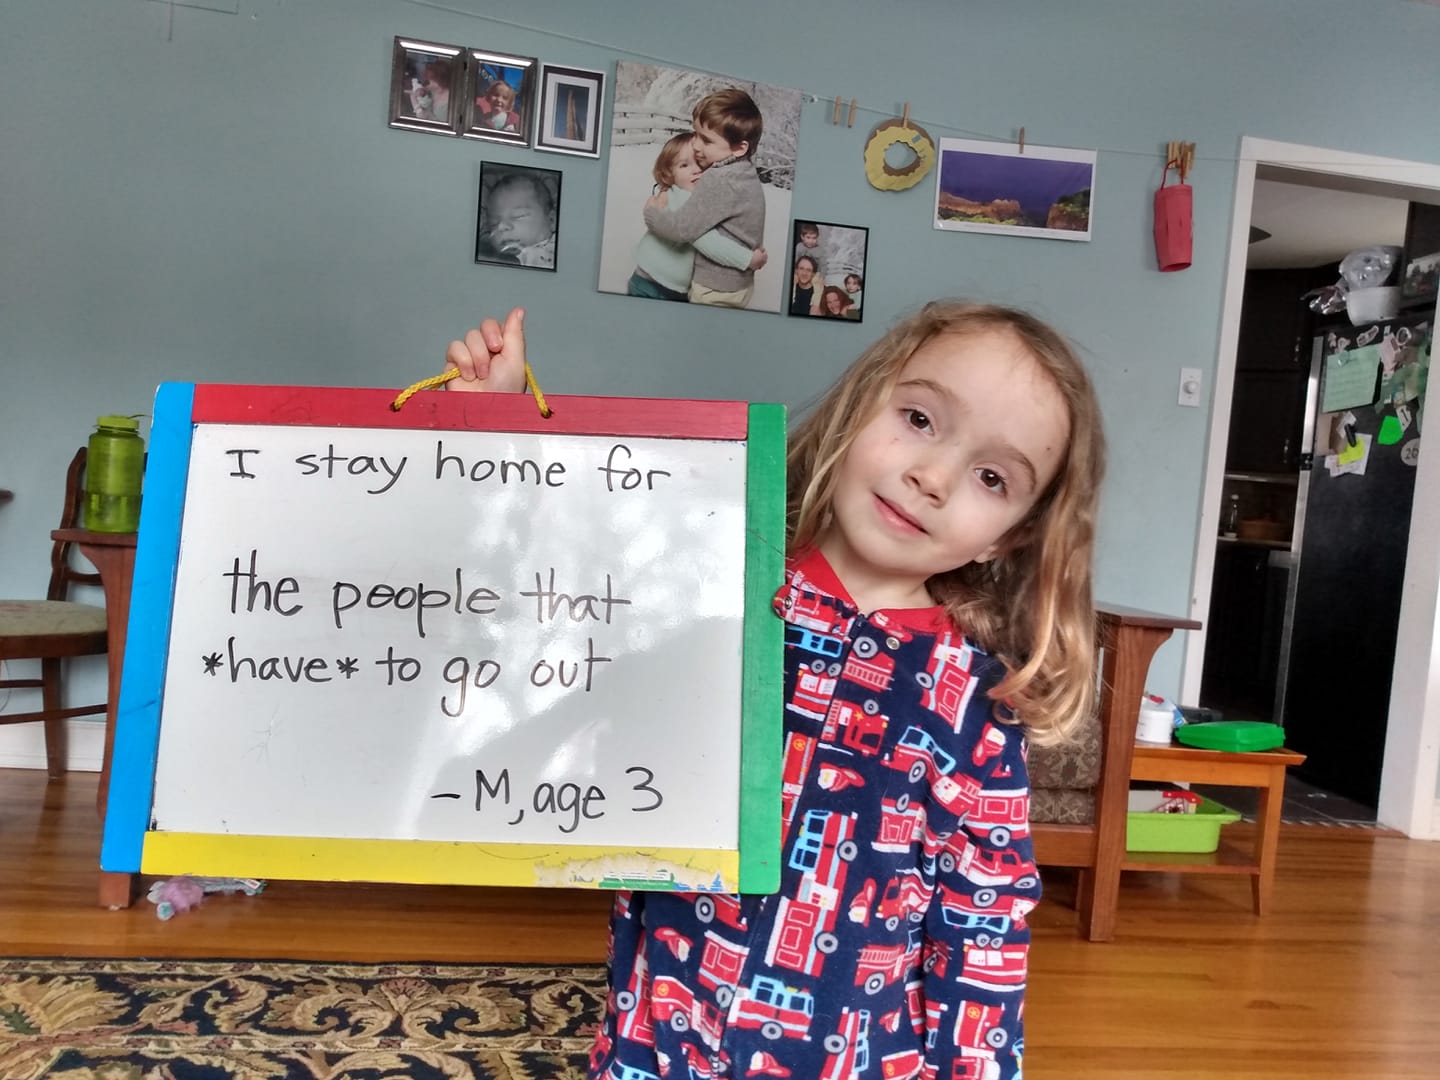 I stay home for
the people that
*have* to go out
-M, age 3